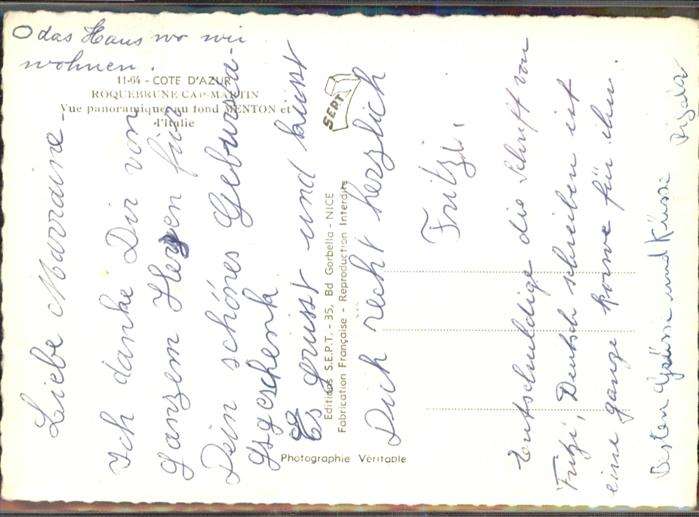 O das Haus wo wir
wohnen.
11-64 - COTE D'AZUR
ROQUEBRUNE CAP-MARTIN
Vue panoramique au fond MENTON et
l'Italie
SEPT
Liebe Marraine
Ich danke Dir von
ganzem Herzen für
Dein schönes Geburts-
gsgeschenk
Es grüsst und küsst
Dich recht herzlich
Fritzi.
Editions S.E.P.T. - 35, Bd Gorbella - NICE
Fabrication Française - Reproduction Interdite
Photographie Véritable
Entschuldige die Schrift von
Fritzi, Deutsch schreiben ist
eine ganze für ihn.
Besten Grüsse und Küsse